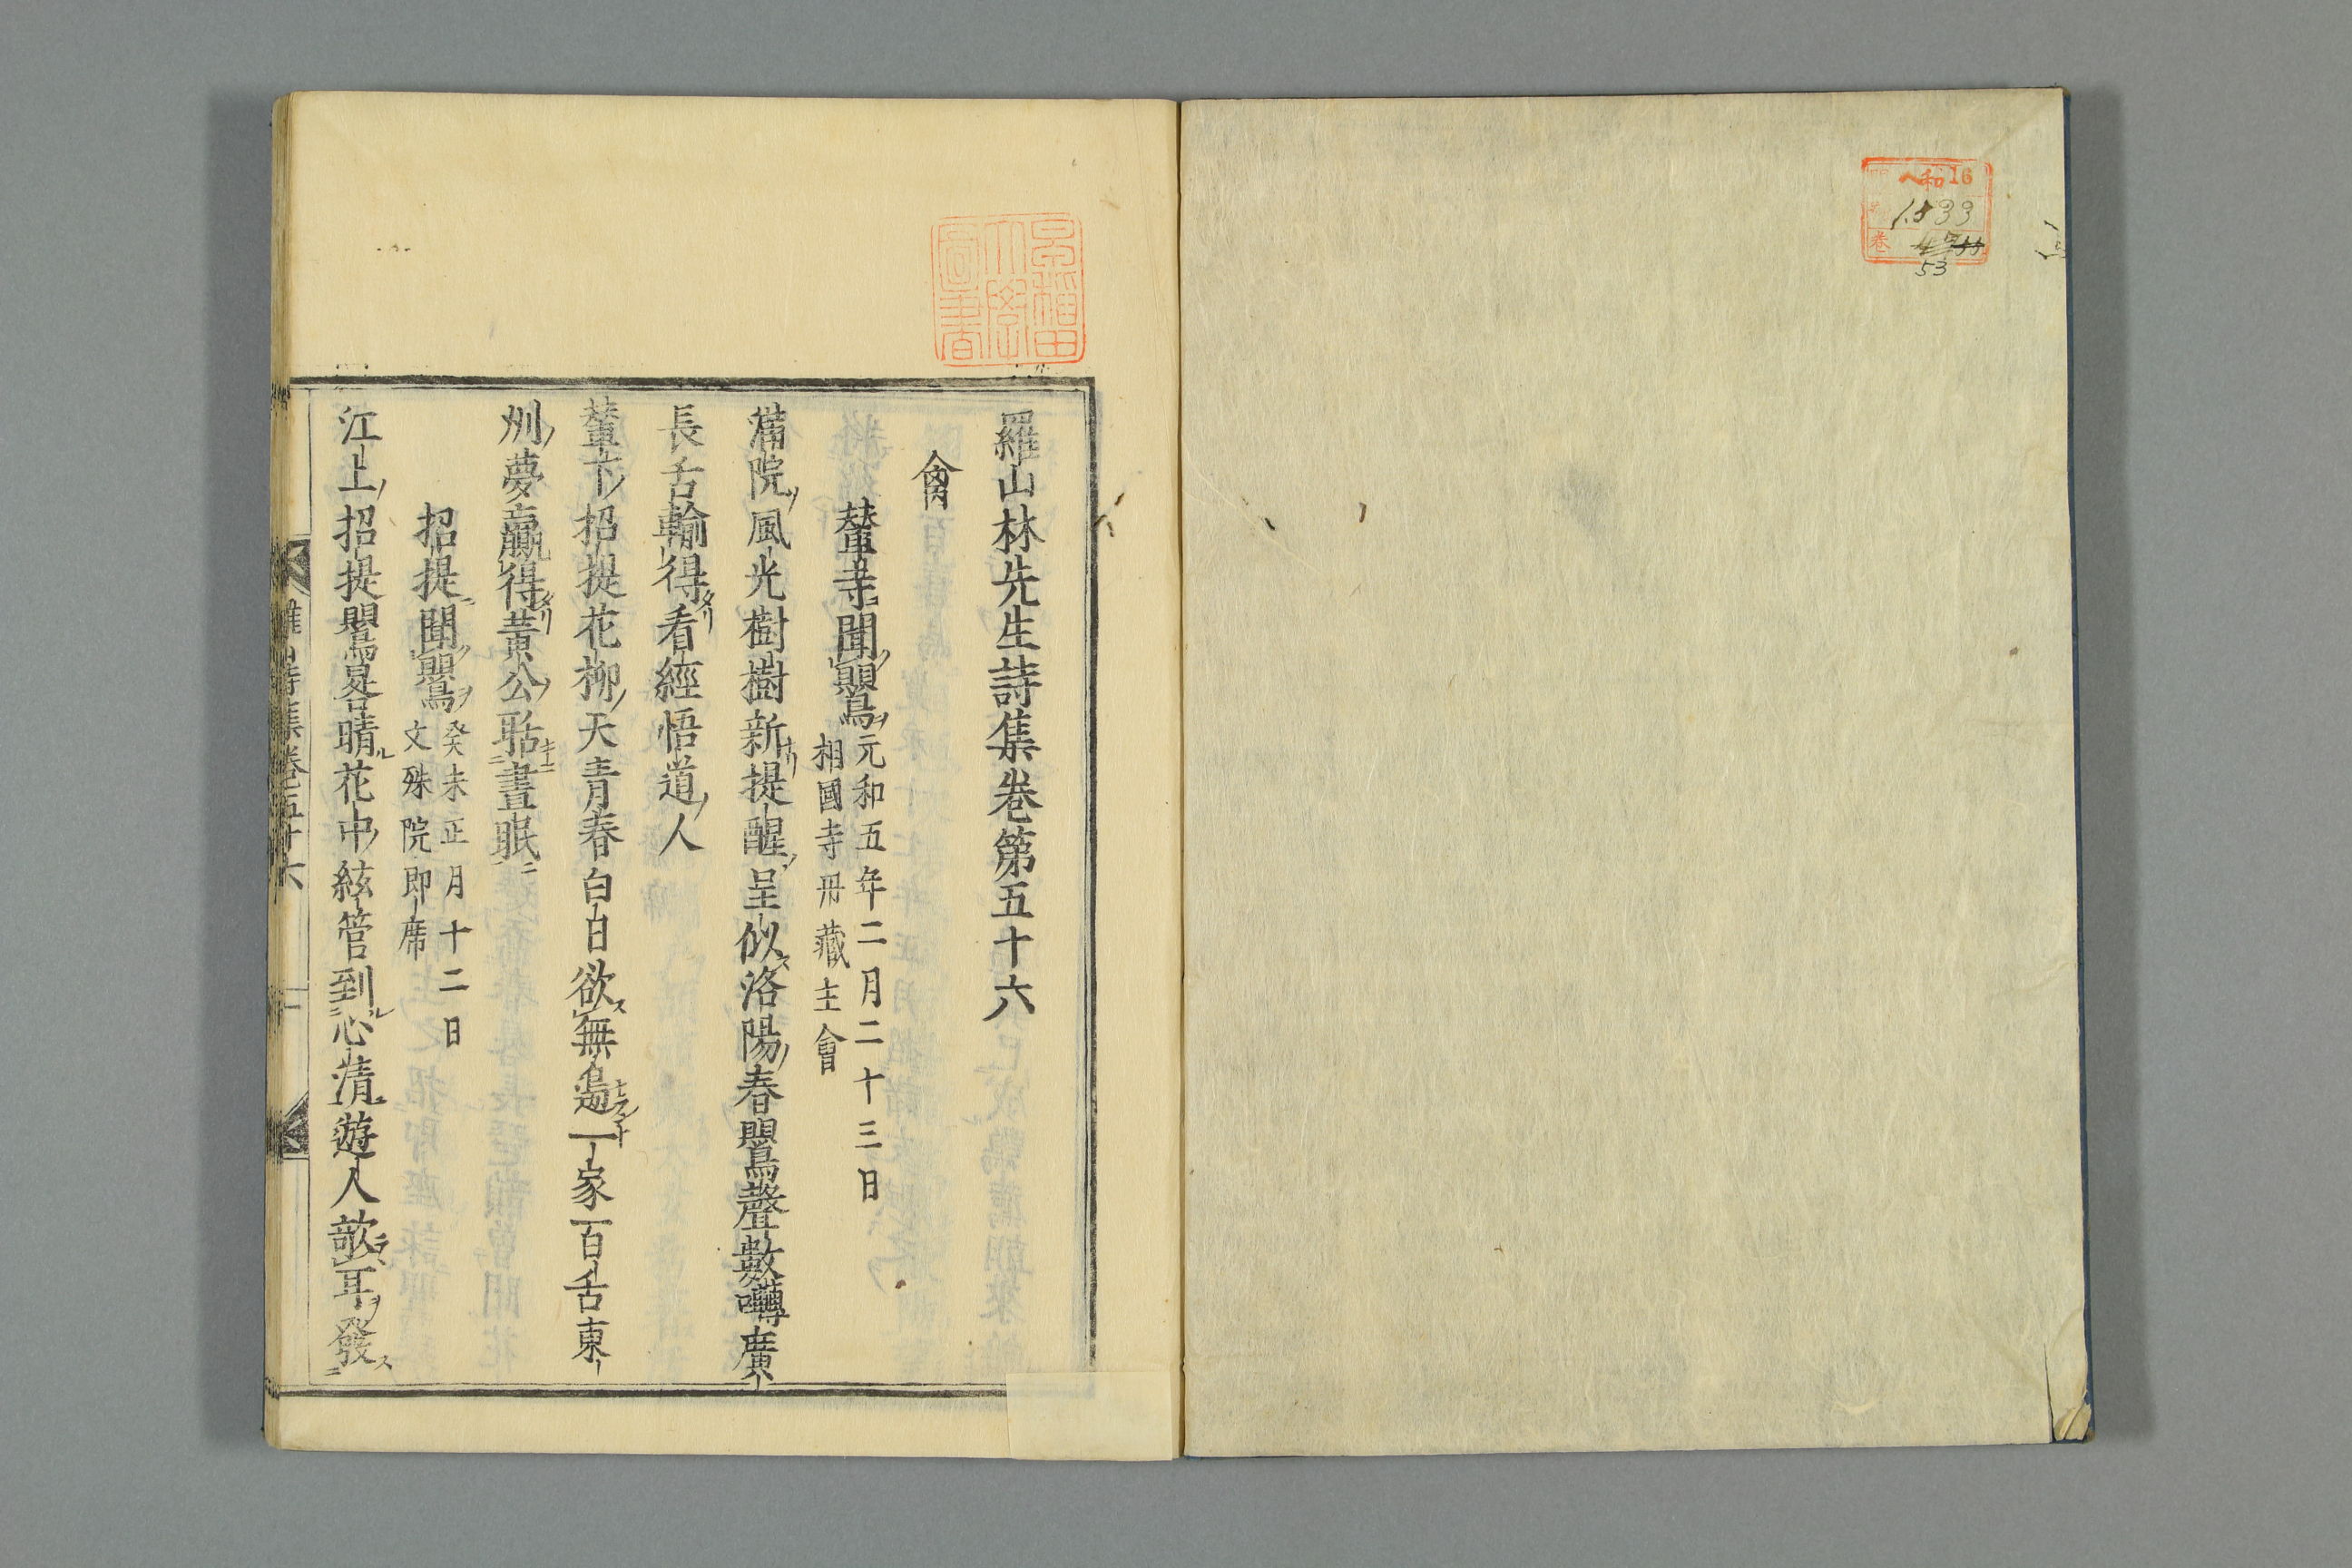 へ和16
1533
卷
53
早稻田大學圖書
羅山林先生詩集卷第五十六
禽
輦寺聞鸎元和五年二月二十三日
相國寺冊藏主會
滿院風光樹樹新提醒呈似洛陽春鸎聲數囀廣
長舌輪得看經悟道人
輦下招提花柳天青春白日欲無邊一家百舌東
州夢贏得黃公聒晝眠
招提聞鸎癸未正月十二日
文殊院即席
江上招提鸎晷晴花中絃管到心清遊人歆耳發
羅山詩集卷五十六 一